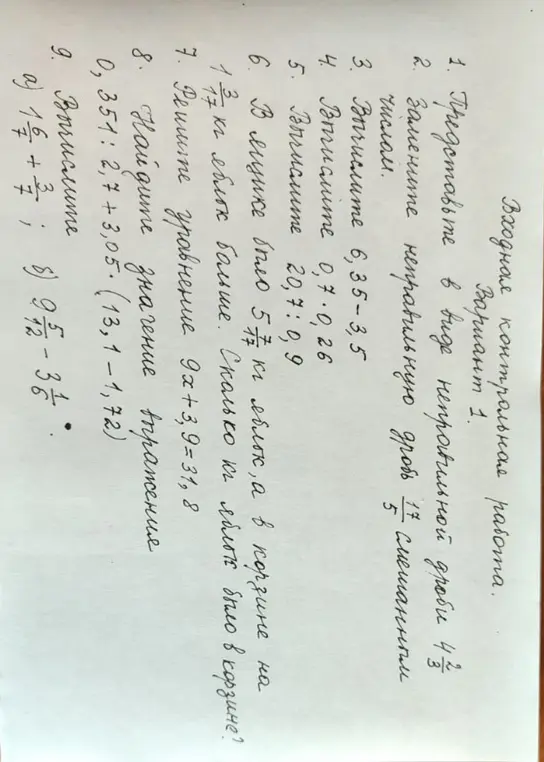 Входная контрольная работа.
Вариант 1.
1. Представьте в виде неправильной дроби 4 2/3
2. Замените неправильную дробь 17/5 смешанным
числом.
3. Вычислите 6,35 - 3,5
4. Вычислите 0,7 · 0,26
5. Вычислите 20,7 : 0,9
6. В ящике было 5 7/17 кг яблок, а в корзине на
1 3/17 кг яблок больше. Сколько кг яблок было в корзине?
7. Решите уравнение 9x + 3,9 = 31,8
8. Найдите значение выражения
0,351 : 2,7 + 3,05 · (13,1 - 1,72)
9. Вычислите
а) 1 6/7 + 3/7 ; б) 9 5/12 - 3 1/6 .